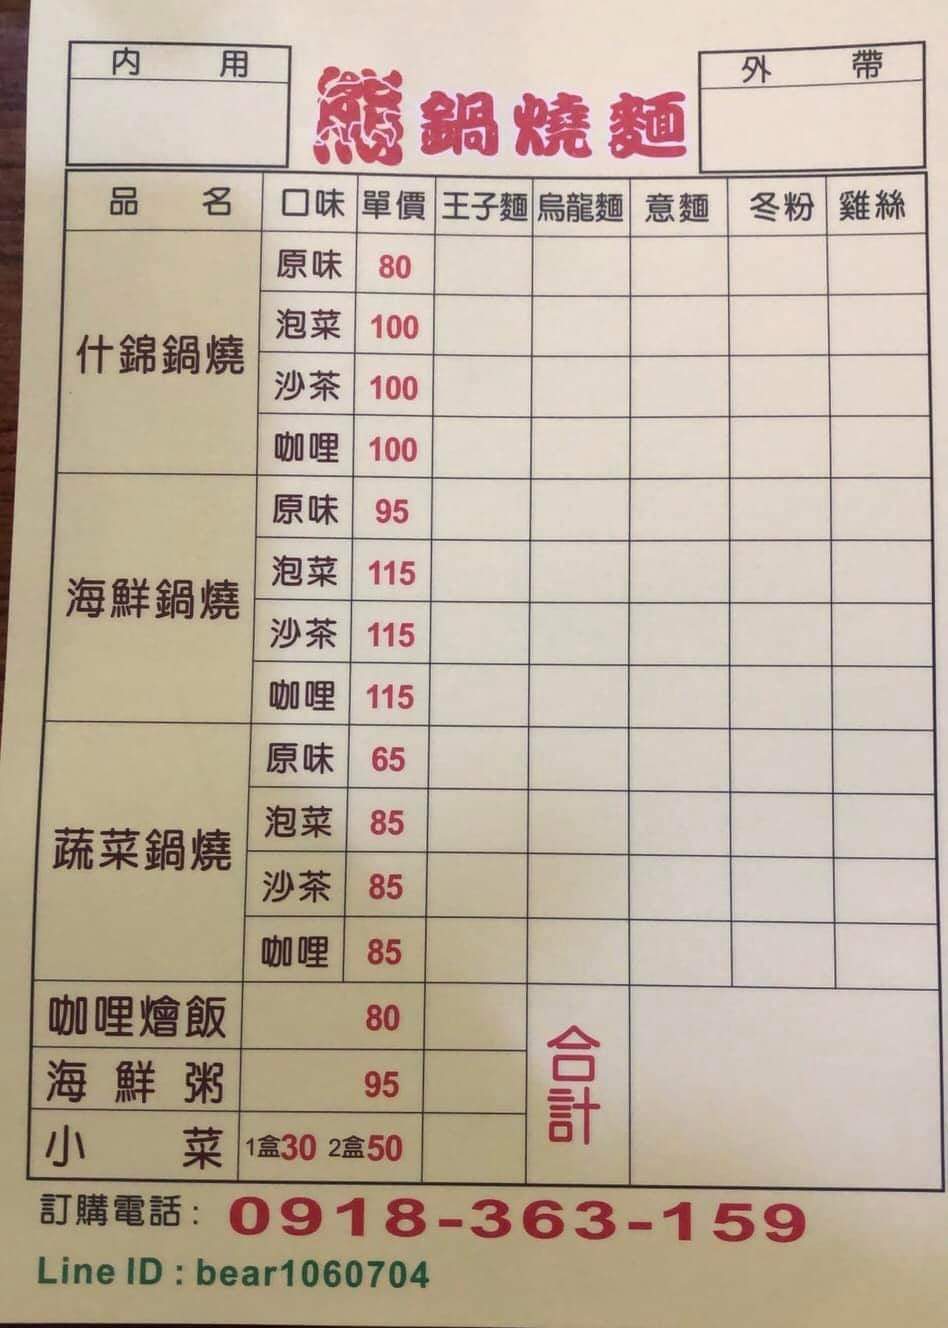 內用
熊鍋燒麵
外帶
品名 口味 單價 王子麵 烏龍麵 意麵 冬粉 雞絲
什錦鍋燒
原味 80
泡菜 100
沙茶 100
咖哩 100
海鮮鍋燒
原味 95
泡菜 115
沙茶 115
咖哩 115
蔬菜鍋燒
原味 65
泡菜 85
沙茶 85
咖哩 85
咖哩燴飯 80
海鮮粥 95
小菜 1盒30 2盒50
合計
訂購電話: 0918-363-159
Line ID : bear1060704